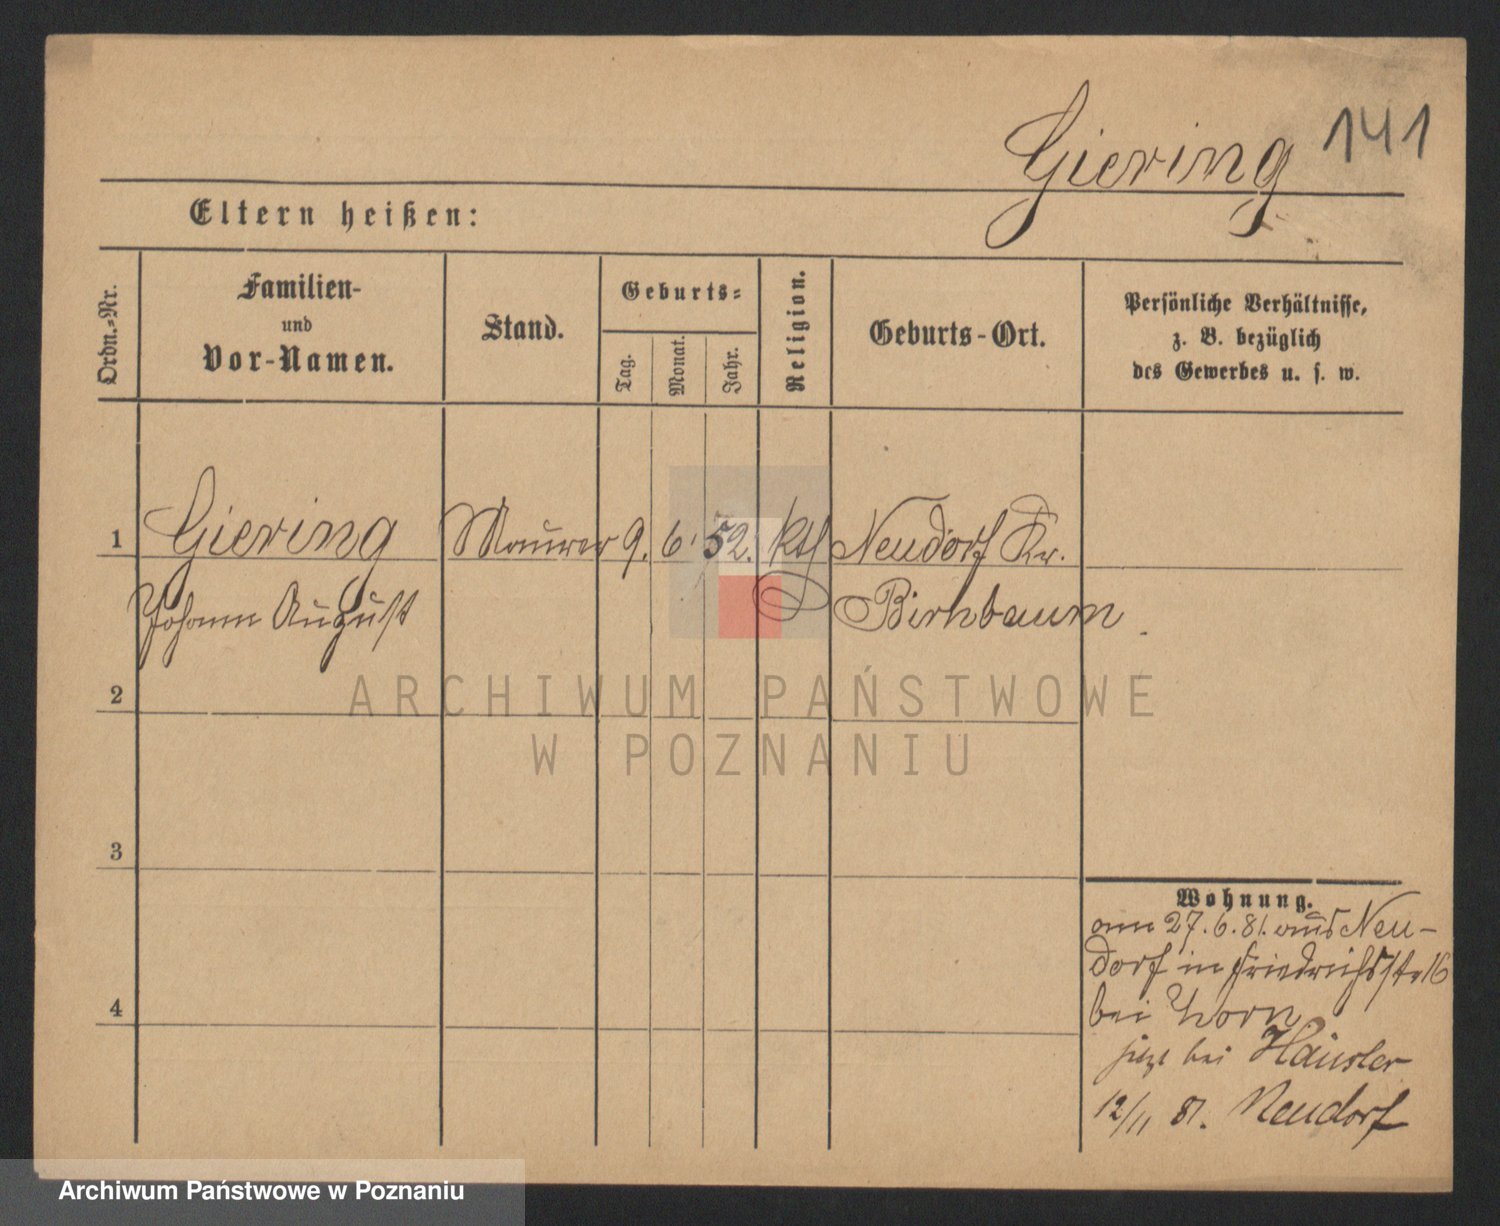 Giering 141
Eltern heißen:
Ordn.-Nr.
Familien-
und
Vor-Namen.
Stand.
Geburts-
Tag.
Monat.
Jahr.
Religion.
Geburts-Ort.
Persönliche Verhältnisse,
z. B. bezüglich
des Gewerbes u. s. w.
1 Giering Maurer 9. 6. 52. kth Neudorf Kr.
Johann August Birnbaum
2
3
4
Wohnung.
am 27.6.81. aus Neu-
dorf in Friedrichsstr 16
bei Horn
jetzt bei Häusler
12/11 81. Neudorf
ARCHIWUM PAŃSTWOWE
W POZNANIU
Archiwum Państwowe w Poznaniu